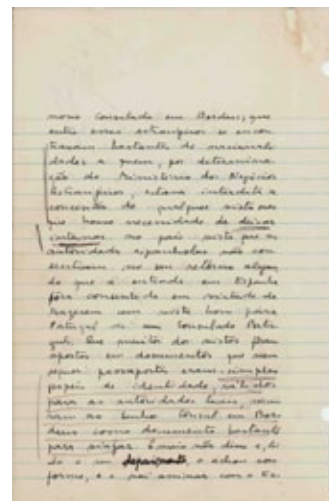 nosso Consulado em Bordeus; que
entre esses estrangeiros se encon
travam bastantes de nacionali
dades a quem, por determina
ção do Ministério dos Negócios
Estrangeiros, estava interdita a
concessão de qualquer visto
que houve necessidade de deixar
entrar no país visto que as
autoridades espanholas não con
sentiam no seu retorno
do que a entrada em Espanha
fôra consentida em virtude de
trazerem um visto bom para
Portugal de um Consulado Portu
guês. Que muitos dos vistos foram
apostos em documentos que nem
sequer passaportes eram: simples
papéis de identidade, válidos
para as autoridades
ao Senhor Consul em Bor
deus como documento bastante
para viajar. E mais não disse e, li
do o seu depoimento, o achou con
forme, e o vai assinar com o